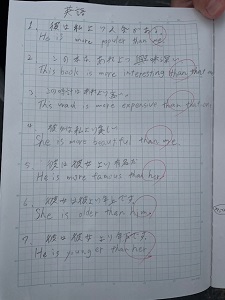 英語
1. 彼は私より人気がある。
He is more popular than me.
2. この本はあれより面白い
This book is more interesting than that one
3. この時計はあれより高い。
The watch is more expensive than that one
4. 彼女は私より美しい
She is more beautiful than me.
5. 彼は彼女より有名だ
He is more famous than her.
6. 彼女は彼より年上です。
She is older than him.
7. 彼は彼女より年下です
He is younger than her.